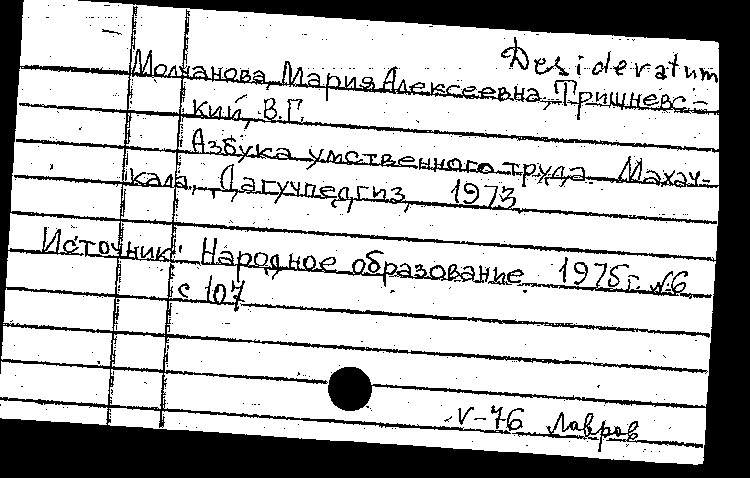 Desideratum
Молчанова, Мария Алексеевна, Тришневс-
кий, В.Г.
Азбука умственного труда. Махач-
кала, Дагучпедгиз, 1973
Источник: Народное образование, 1975г. №6
с 107
V-76 Лавров